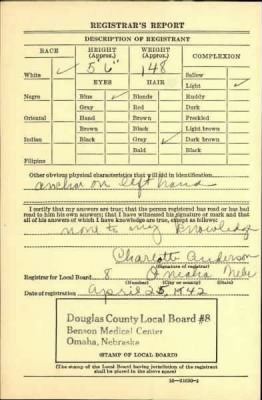 REGISTRAR'S REPORT
DESCRIPTION OF REGISTRANT
RACE HEIGHT (Approx.) WEIGHT (Approx.) COMPLEXION
White ✓ 5'6" 148 Sallow
Light ✓
EYES HAIR
Negro Blue ✓ Blonde Ruddy
Gray Red Dark
Oriental Hazel Brown Freckled
Brown Black Light brown
Indian Black Gray ✓ Dark brown
Bald Black
Filipino
Other obvious physical characteristics that will aid in identification
anchor on left hand
I certify that my answers are true; that the person registered has read or has had
read to him his own answers; that I have witnessed his signature or mark and that
all of his answers of which I have knowledge are true, except as follows:
none to my knowledge
Charlotte Anderson
(Signature of registrar)
Registrar for Local Board 8 Omaha Nebr
(Number) (City or county) (State)
Date of registration April 25, 1942
Douglas County Local Board #8
Benson Medical Center
Omaha, Nebraska
(STAMP OF LOCAL BOARD)
(The stamp of the Local Board having jurisdiction of the registrant
shall be placed in the above space)